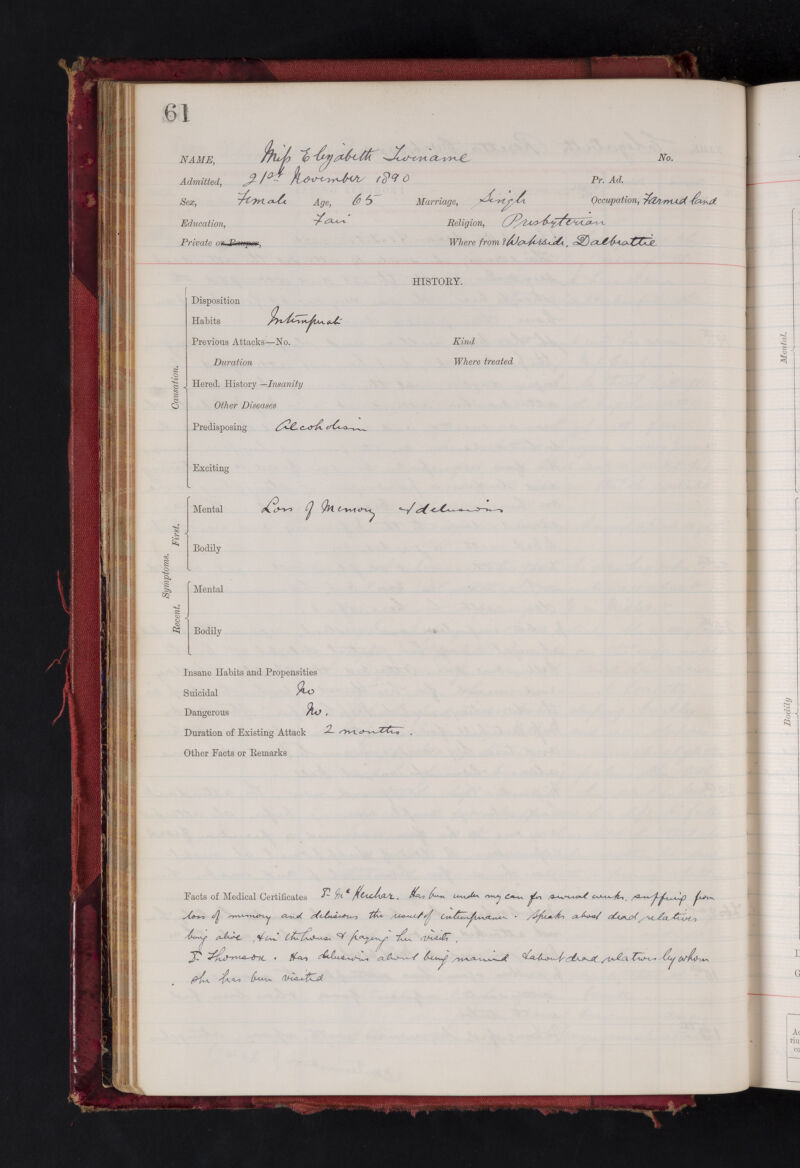 61
NAME, Miss Elizabeth No.
Admitted, 21st November 1890 Pr. Ad.
Sex, Female Age, 65 Marriage, Single Occupation, Farmed land
Education, Fair Religion, Presbyterian
Private or Pauper, Where from? Dalbeattie
HISTORY.
Causation.
Disposition
Habits Intemperate
Previous Attacks—No. Kind
Duration Where treated
Hered. History—Insanity
Other Diseases
Predisposing Alcoholism
Exciting
Symptoms.
First.
Mental Loss of Memory & delusions
Bodily
Recent.
Mental
Bodily
Insane Habits and Propensities
Suicidal No
Dangerous No.
Duration of Existing Attack 2 months.
Other Facts or Remarks
Facts of Medical Certificates Has been under my care for several weeks, suffering from
loss of memory and delusions the result of intemperance. Speaks about dead relatives
being alive, & in the house & paying her visits.
Thomson. Has delusions about being married & about dead relatives by whom
she has been visited
Mental.
Bodily